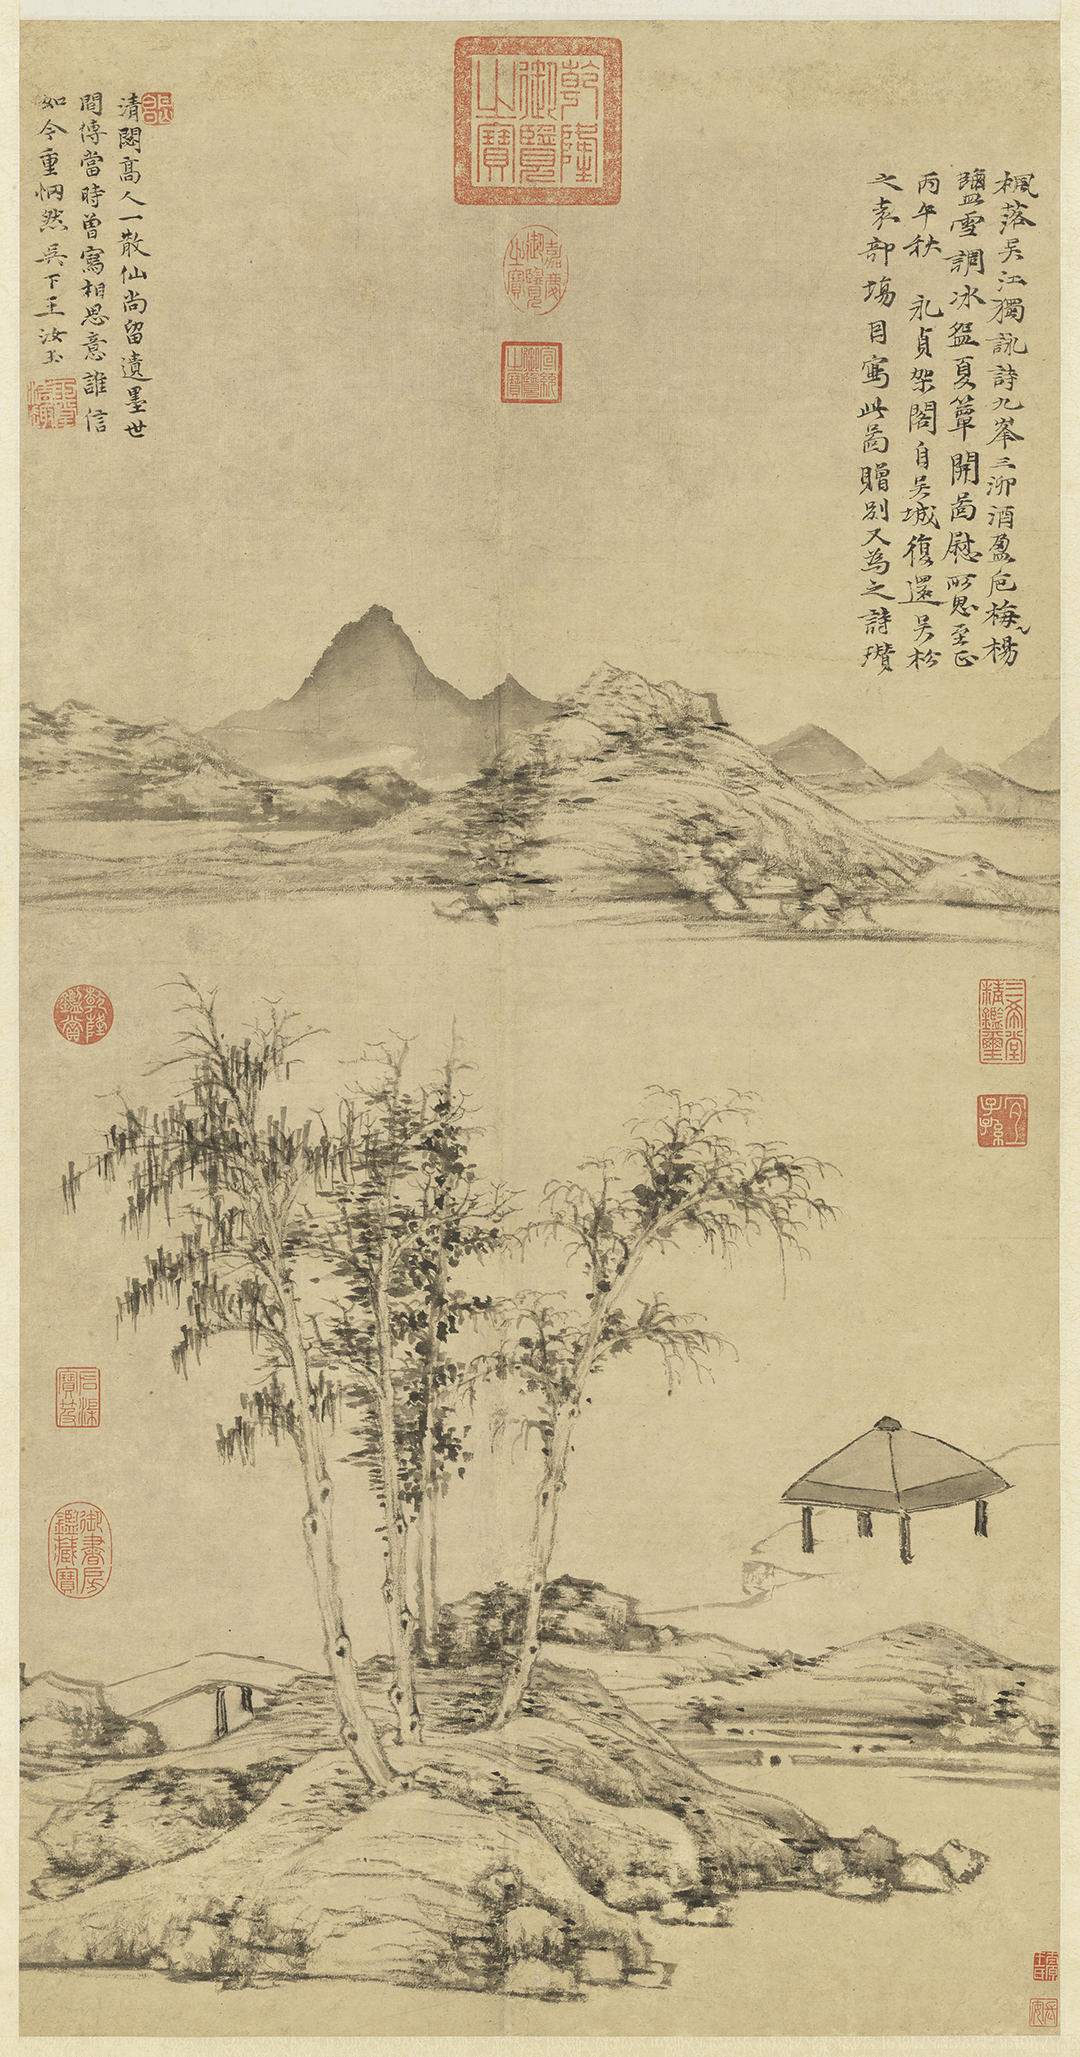 楓落吳江獨詠詩九峯三泖酒盈卮梅楊
鹽雪調冰盌夏簟開圖慰所思至正
丙午秋 永貞架閣自吳城復還吳松
之素部場因寫此圖贈別又為之詩瓚
清閟高人一散仙尚留遺墨世
間傳當時曾寫相思意誰信
如今重惘然吳下王汝玉
乾隆御覽之寶
嘉慶御覽之寶
宣統御覽之寶
三希堂精鑑璽
宜子孫
乾隆鑑賞
石渠寶笈
御書房鑑藏寶